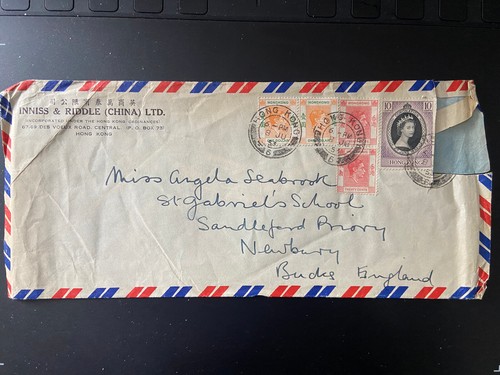 司公限有賚萬商英
INNISS & RIDDLE (CHINA) LTD.
(INCORPORATED UNDER THE HONG KONG ORDINANCES)
DES VOEUX ROAD, CENTRAL. (P. O. BOX
HONG KONG
HONG KONG
HONGKONG
HONGKONG
HONG KONG
10 10
HONG KONG
Miss Angela Seabrook
St Gabriel's School
Sandleford Priory
Newbury
Bucks England